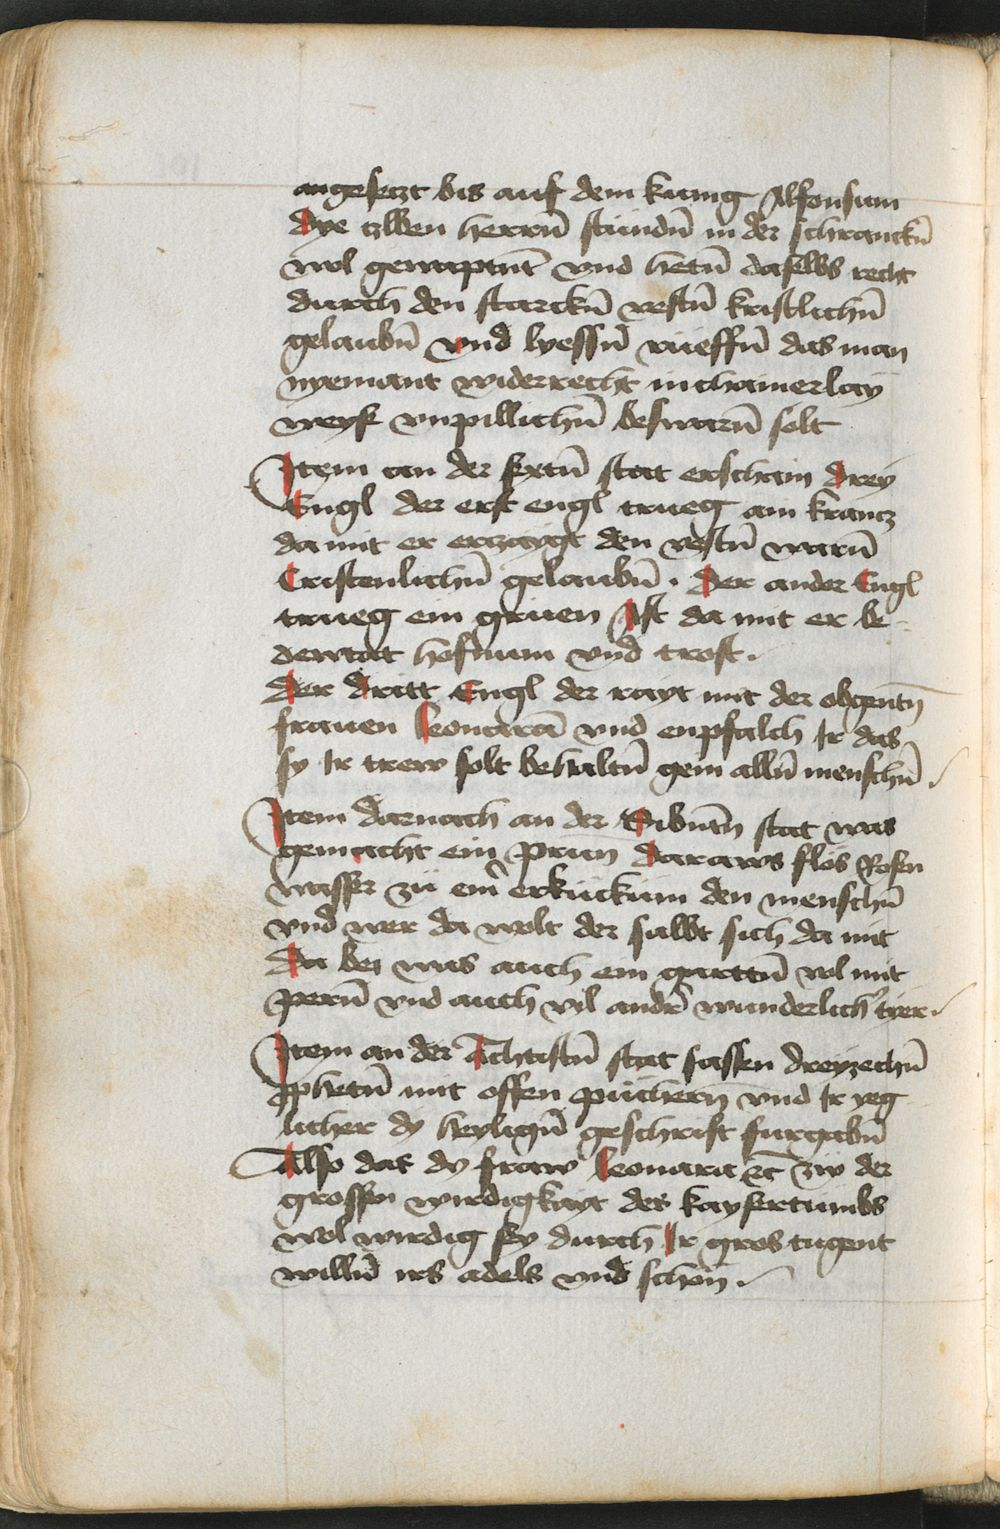 angesetzt bis auf dem kunig Alfonsum
Dye tzlben herrñ stundñ in der schranckñ
wol gewaptnt vnd hetñ daselbs recht
durch den starckñ vestñ kristlichñ
gelaubñ vnd lyessñ rueffñ das man
nyemant widerrecht in chainerlay
weyß vnpillichñ beswarñ solt
Item an der sextñ stat erschain drey
Engl der erst engl trueg ain krancz
da mit er erzaygt den vestñ warñ
Cristenlichñ gelaubñ . Der ander Engl
trueg ein gruen Ast da mit er be-
dewtat hofnum vnd trost .
Der dritt Engl der rayt mit der obgentñ
frauen leonorã vnd enpfalch Ir das
sy Ir trew solt behaltñ gem allñ menschñ .
Item darnach an der Sibntñ stat was
gemacht ein prun daraws flos Rosen
wasser zu em̃ erkuckum den menschñ
vnd wer da wolt der salbt sich da mit
Da bey was auch ein gartten vol mit
perñ vnd auch vil andr̃ wunderlich' tyer .
Item an der Achtistñ stat sassen dreyzechñ
Pphetñ mit offen puchern vnd Ir yeg
licher dy heyligñ geschrift furgabñ
Also das dy fraw leonora etc zw der
grossen wirdigkayt des kaysertumbs
wol wirdig sey durch Ir gros tugent
willñ irs adels vnd schon .